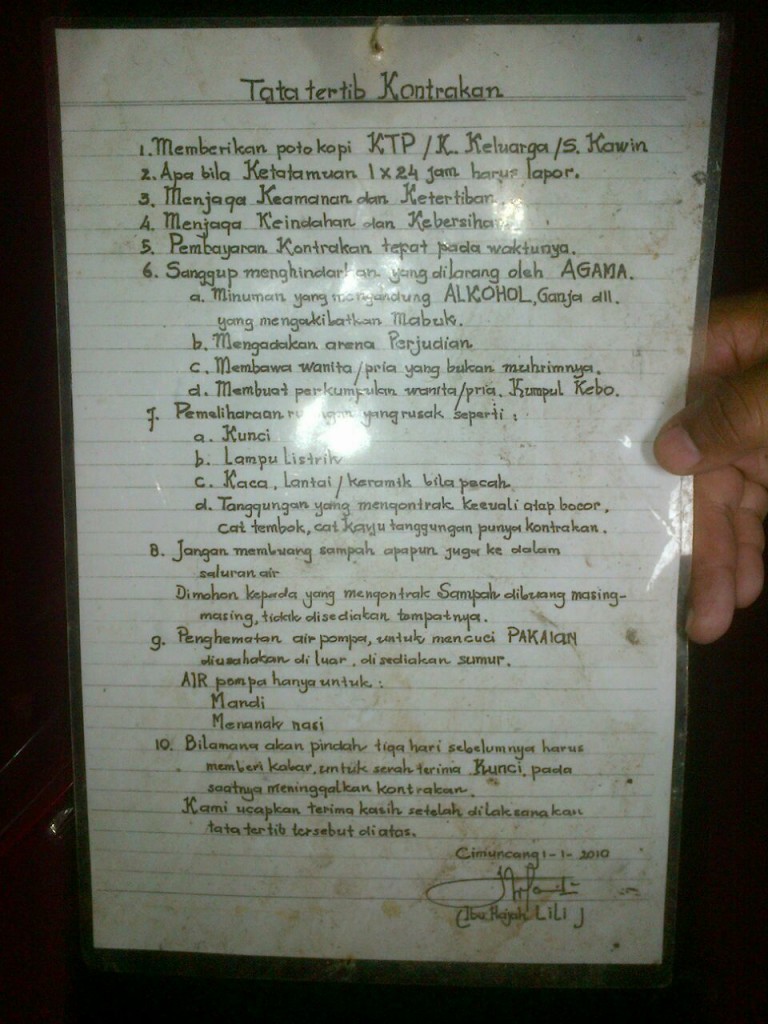 Tata tertib Kontrakan
1. Memberikan potokopi KTP / K. Keluarga / S. Kawin
2. Apa bila Ketatamuan 1 x 24 jam harus lapor.
3. Menjaga Keamanan dan Ketertiban
4. Menjaga Keindahan dan Kebersihan
5. Pembayaran Kontrakan tepat pada waktunya.
6. Sanggup menghindarkan yang dilarang oleh AGAMA.
a. Minuman yang mengandung ALKOHOL, Ganja dll.
yang mengakibatkan Mabuk.
b. Mengadakan arena Perjudian
c. Membawa wanita/pria yang bukan muhrimnya.
d. Membuat perkumpulan wanita/pria. Kumpul Kebo.
7. Pemeliharaan ruangan yang rusak seperti :
a. Kunci
b. Lampu Listrik
c. Kaca, Lantai / keramik bila pecah
d. Tanggungan yang mengontrak kecuali atap bocor,
cat tembok, cat kayu tanggungan punya kontrakan.
8. Jangan membuang sampah apapun juga ke dalam
saluran air
Dimohon kepada yang mengontrak Sampah dibuang masing-
masing, tidak disediakan tempatnya.
9. Penghematan air pompa, untuk mencuci PAKAIAN
diusahakan di luar, disediakan sumur.
AIR pompa hanya untuk :
Mandi
Menanak nasi
10. Bilamana akan pindah tiga hari sebelumnya harus
memberi kabar, untuk serah terima Kunci, pada
saatnya meninggalkan kontrakan.
Kami ucapkan terima kasih setelah dilaksanakan
tata tertib tersebut diatas.
Cimuncang 1-1-2010
(Ibu Hajah LILI)